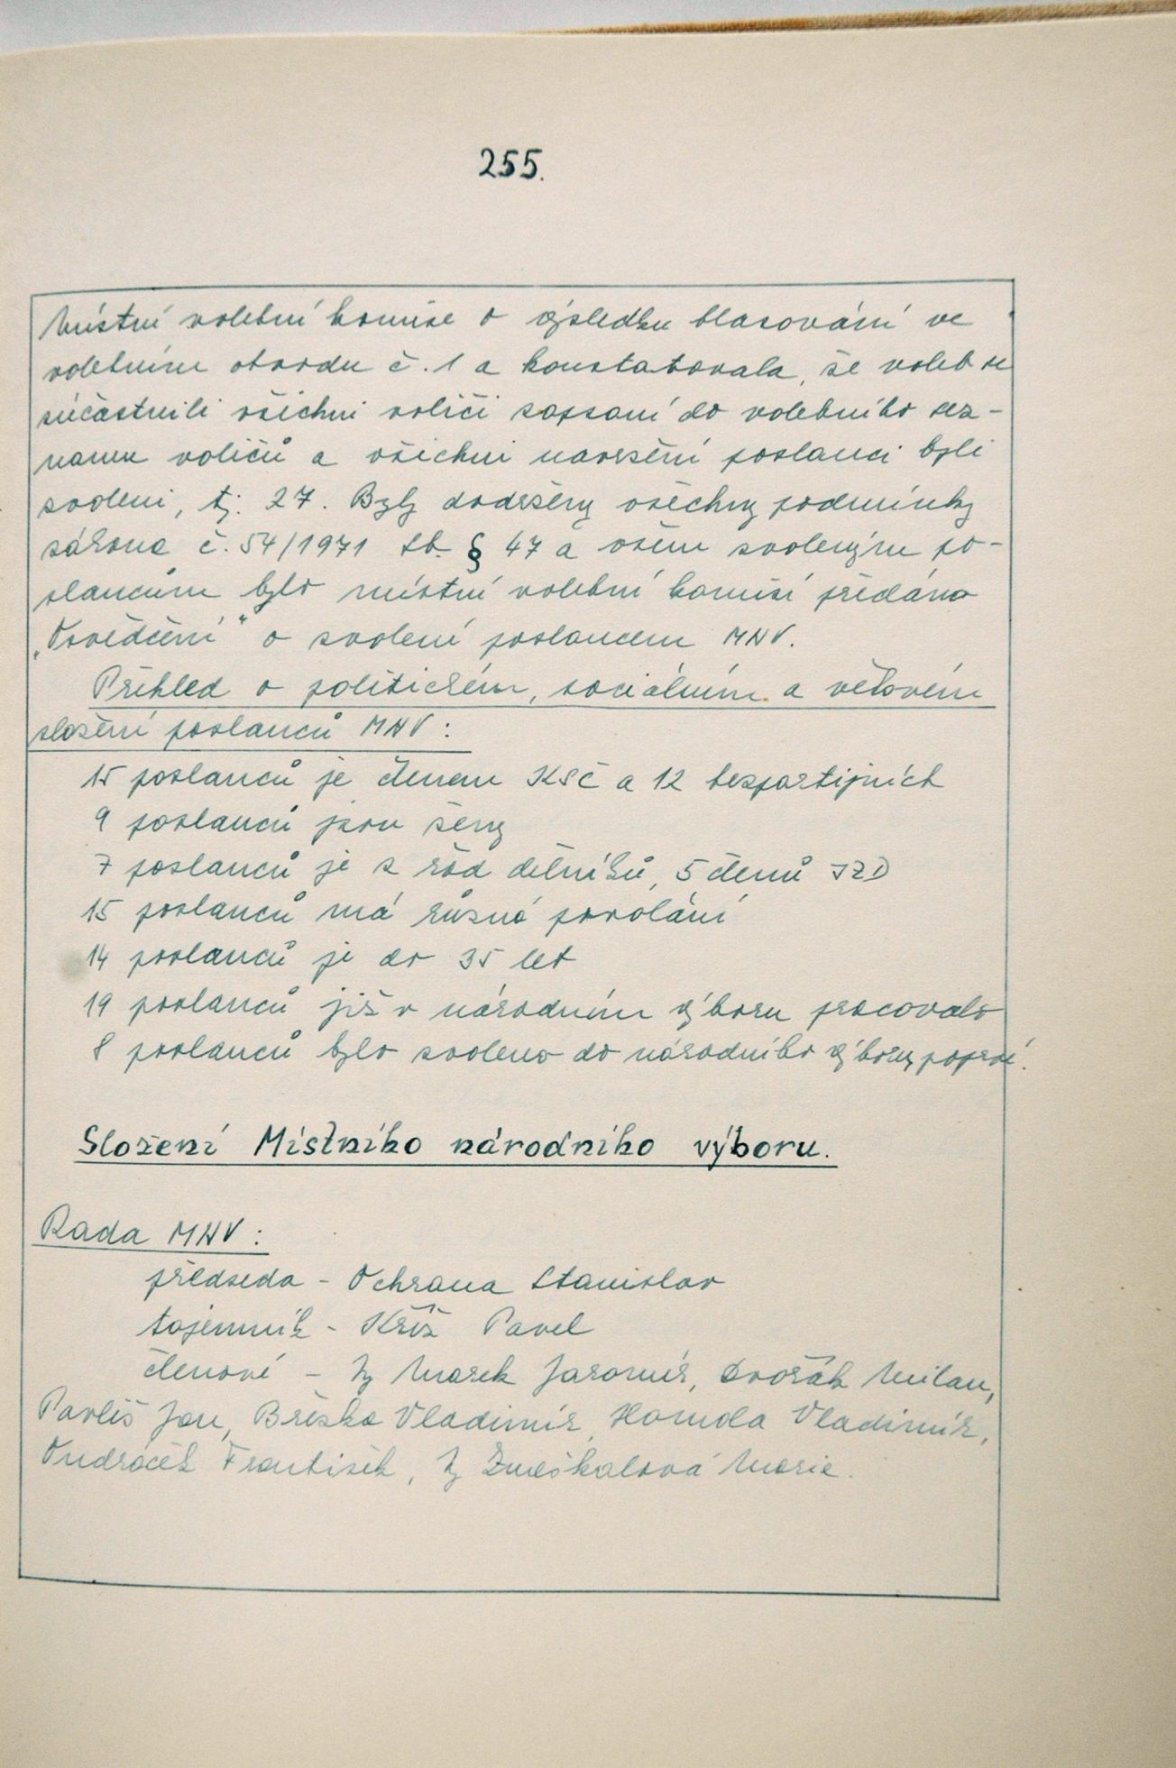 255.
Místní volební komise o výsledku hlasování ve
volebním obvodu č. 1 a konstatovala, že voleb se
súčastnili všichni voliči zapsaní do volebního sez-
namu voličů a všichni navržení poslanci byli
zvoleni, tj. 27. Byly dodrženy všechny podmínky
zákona č. 54/1971 Sb. § 47 a všem zvoleným po-
slancům bylo místní volební komisí předáno
„Osvědčení" o zvolení poslancem MNV.
Přehled o politickém, sociálním a věkovém
složení poslanců MNV:
15 poslanců je členem KSČ a 12 bezpartijních
9 poslanců jsou ženy
7 poslanců je z řad dělníků, 5 členů JZD
15 poslanců má různá povolání
14 poslanců je do 35 let
19 poslanců již v národním výboru pracovalo
8 poslanců bylo zvoleno do národního výboru poprvé.
Složení Místního národního výboru.
Rada MNV:
předseda - Ochrana Stanislav
tajemník - Kříž Pavel
členové - Marek Jaromír, Dvořák Milan,
Pavliš Jan, Břeska Vladimír, Homola Vladimír,
Ondráček František, Zmeškalová Marie.